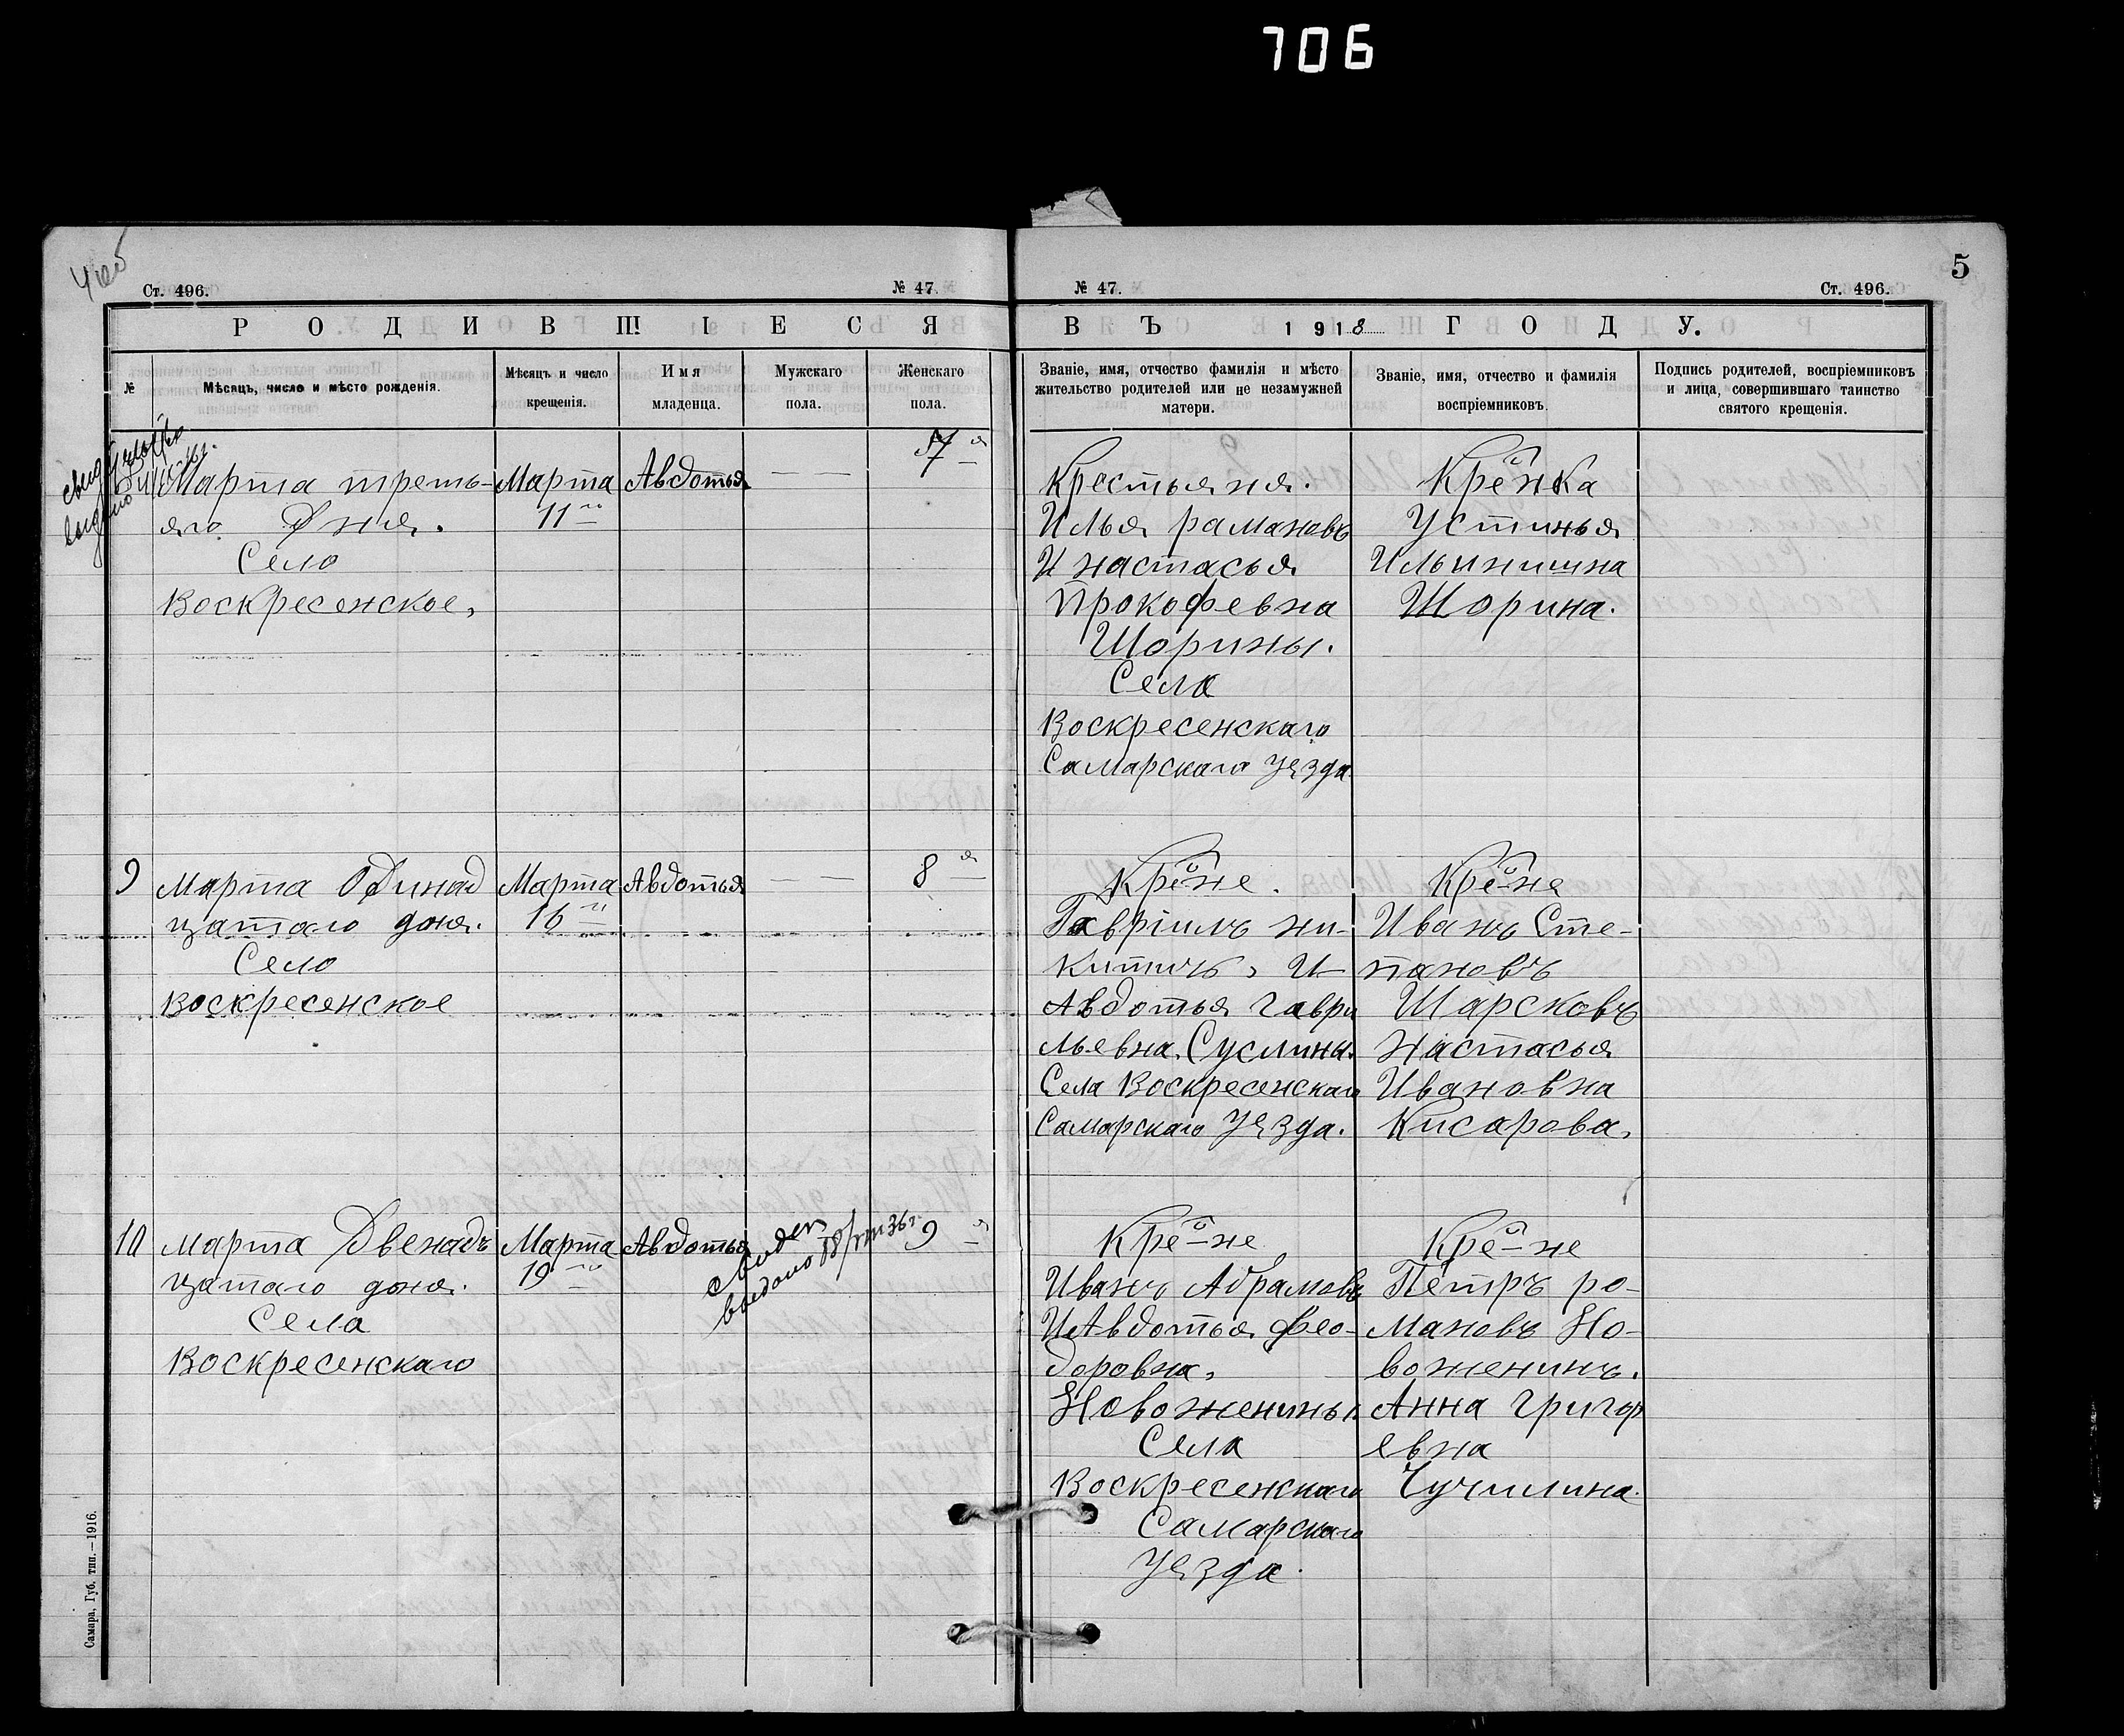 706
5
Ст. 496.
№ 47.
№ 47.
Ст. 496.
РОДИВШІЕСЯ
ВЪ 1918 ГОДУ.
№
Мѣсяцъ, число и мѣсто рожденія.
Мѣсяцъ и число
крещенія.
Имя
младенца.
Мужскаго
пола.
Женскаго
пола.
Званіе, имя, отчество фамилія и мѣсто
жительство родителей или не незамужней
матери.
Званіе, имя, отчество и фамилія
воспріемниковъ.
Подпись родителей, воспріемниковъ
и лица, совершившаго таинство
святого крещенія.
Марта треть-
яго Дня.
Село
Воскресенское,
Марта
11го
Авдотья
— —
7я
Крестьяня.
Илья рамановъ
И настасья
Прокофевна
Шорины.
Села
Воскресенскаго
Самарскаго Уѣзда
Кре-нка
Устинья
Ильинишна
Шорина.
9
Марта Одинад
цатаго дня.
Село
Воскресенское
Марта
16го
Авдотья
— —
8я
Кре-не.
Гавріилъ ни-
китичъ, И
Авдотья гаври
льевна. Суслины.
Села Воскресенскаго
Самарскаго Уѣзда.
Кре-не
Иванъ Сте-
пановъ
Шарсковъ
Настасья
Ивановна
Кисарова,
10
Марта Двенадъ
цатаго дня.
Села
Воскресенскаго
Марта
19го
Авдотья
выдано 18/VIII 36г.
9я
Кре-не
Иванъ Абрамовъ
И Авдотья Фео-
доровна,
Новоженины.
Села
Воскресенскаго
Самарскаго
Уѣзда.
Кре-не
Петръ ро-
мановъ Но-
воженинъ.
Анна григор
евна
Чучилина.
Самара, Губ. тип.—1916.